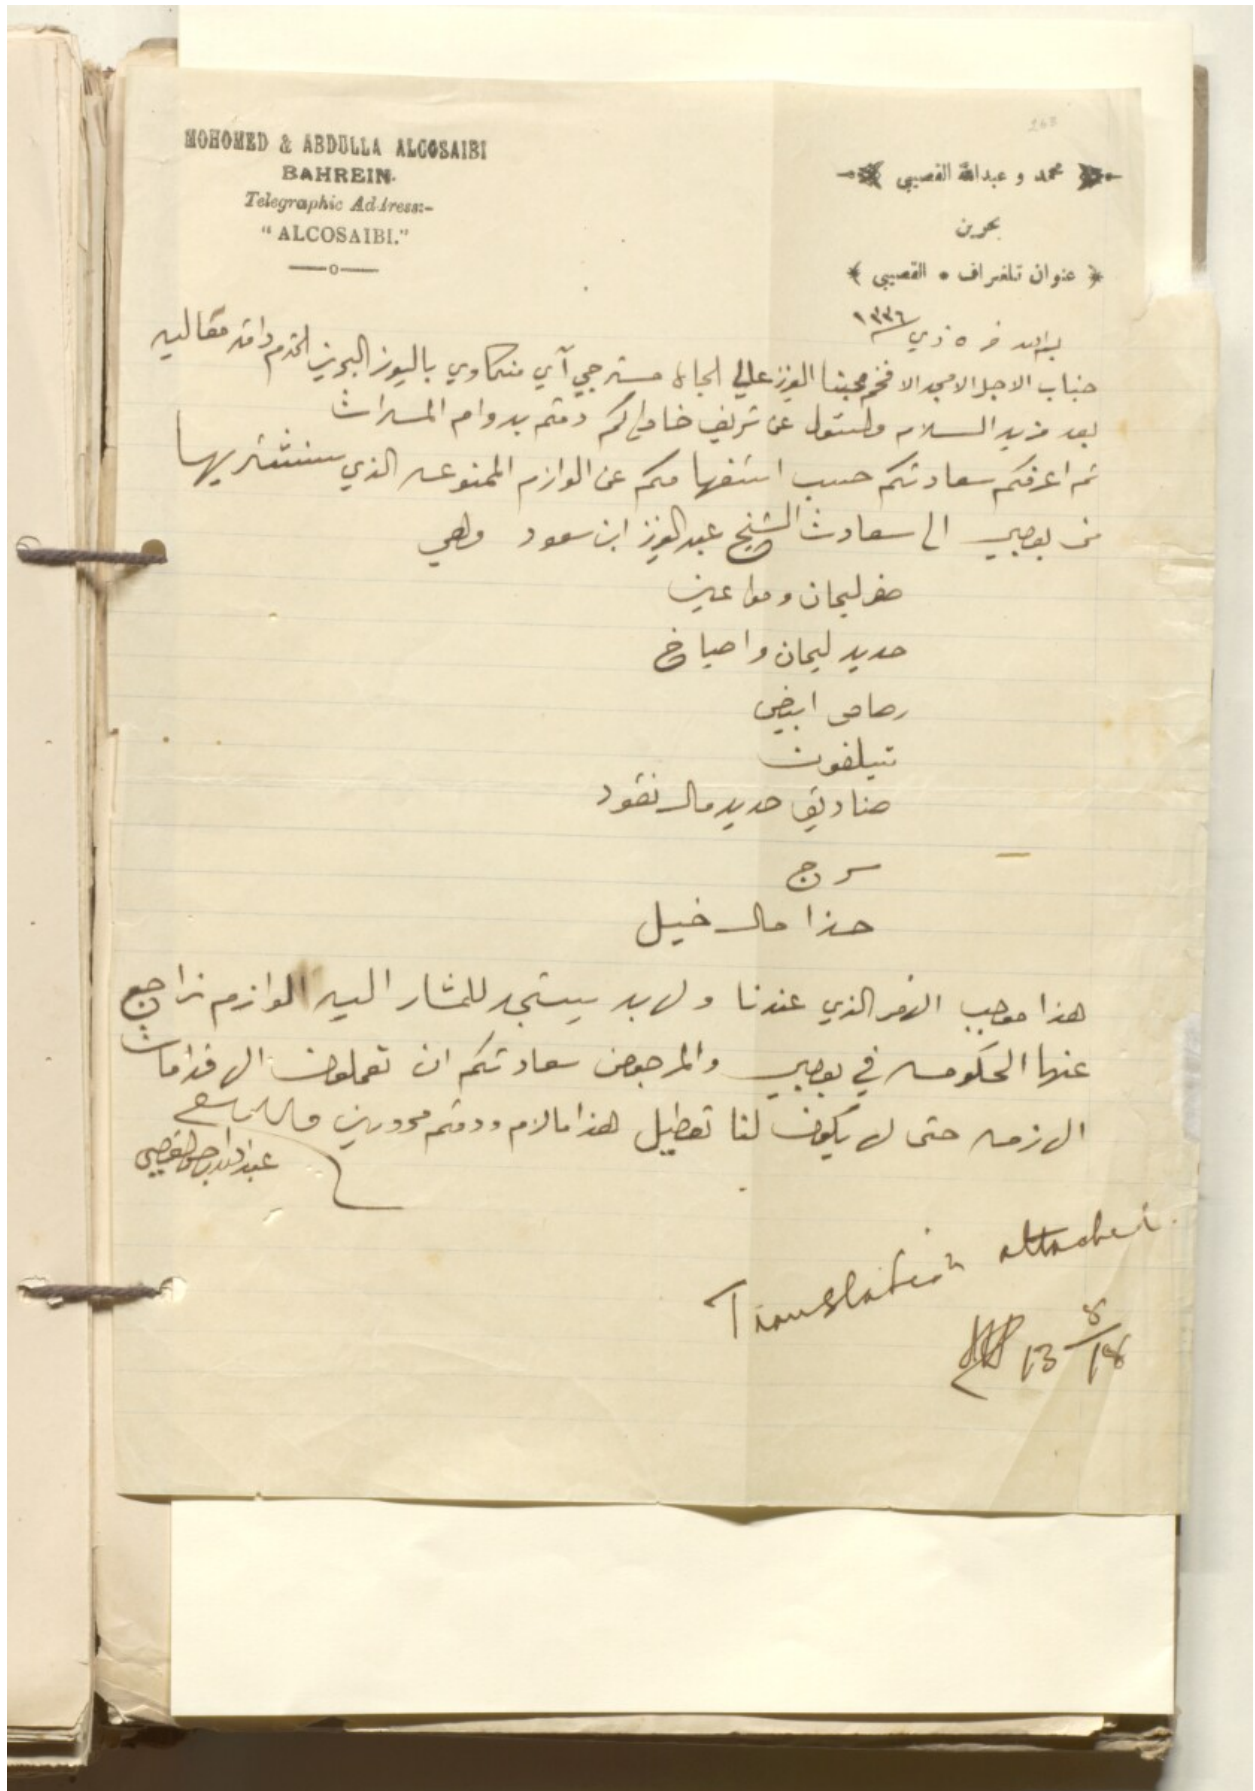 MOHOMED & ABDULLA ALCOSAIBI
BAHREIN.
Telegraphic Address:-
"ALCOSAIBI."
268
محمد و عبدالله القصيبي
بحرين
﴿ عنوان تلغراف • القصيبي ﴾
في ٥ ذي ١٣٣٦
جناب الاجل الامجد الافخم محبنا العزيز عالي الجاه مستر جي آي باليوز البحرين المحترم دامة معاليه
بعد مزيد السلام والسئول عن شريف خاطركم دمتم بدوام المسرات
ثم اعرفكم سعادتكم حسب استفهامكم عن الوازم الممنوعه الذي سنشتريها
من بومبي الى سعادت الشيخ عبدالعزيز ابن سعود وهي
صفر ليحان ومواعين
حديد ليحان واصياخ
رصاص ابيض
تيلفون
صناديق حديد مال نقود
سرج
حذا مال خيل
هذا موجب الامر الذي عندنا ولابد يستجد للمشار اليه لوازم نراجع
عنها الحكومه في بومبي والمرجو من سعادتكم ان تعملون الاقدامات
الازمه حتى لا يكون لنا تعطيل هذا مالزم ودمتم محروسين والسلام
عبدالله القصيبي
Translation attached.
13 8/18